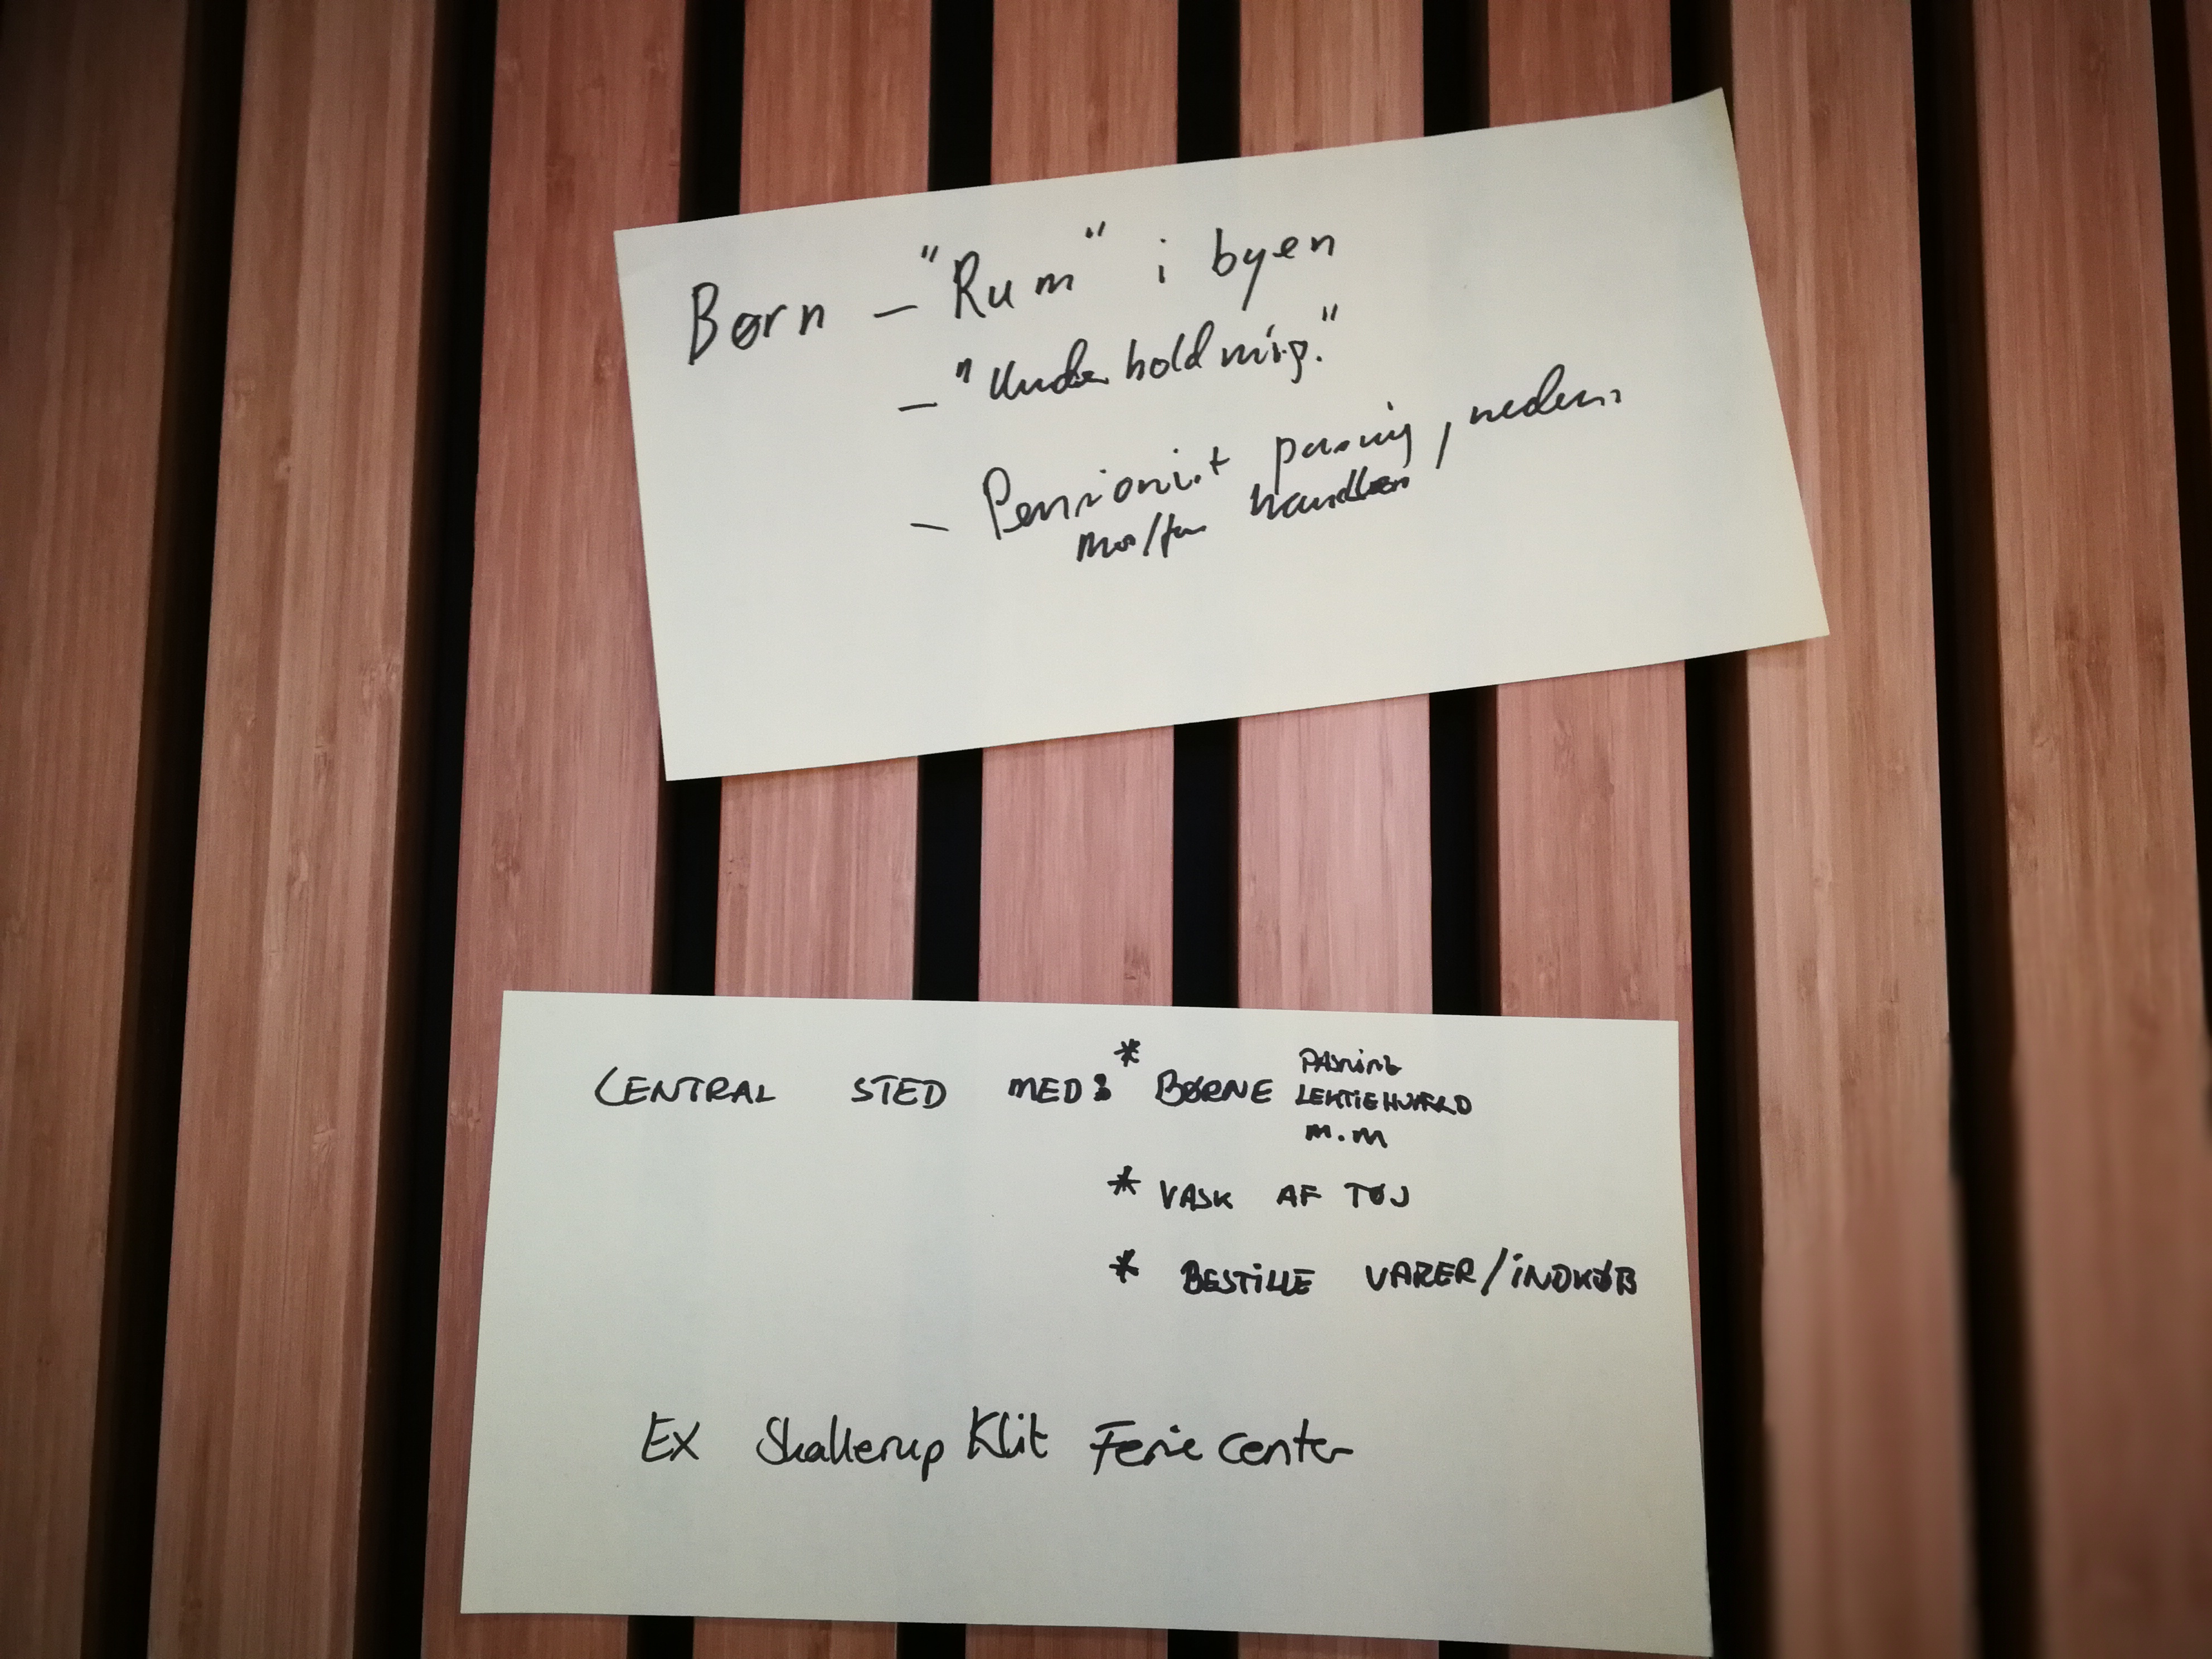 Børn – "Rum" i byen
– "Underholdning."
– Pensionist pasning, medens
mor/far handler
CENTRAL STED MED: * BØRNE PASNING
LEKTIEHJÆLP
m.m
* VASK AF TØJ
* BESTILLE VARER/INDKØB
Ex Skallerup Klit Feriecenter